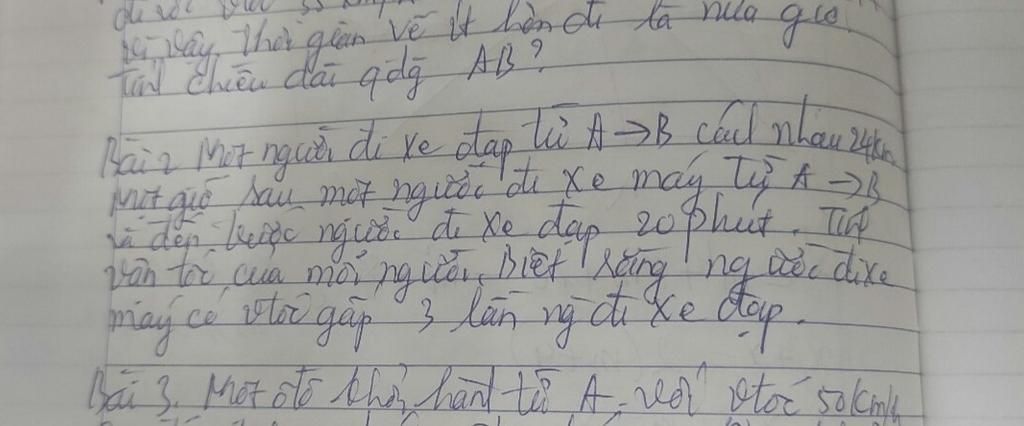 thời gian về ít hơn đi là nửa giờ.
Tính chiều dài qdg AB?
Bài 2 Một người đi xe đạp từ A → B cách nhau 24km
Một giờ sau một người đi xe máy từ A → B
và đến trước người đi xe đạp 20 phút. Tính
vận tốc của mỗi người. Biết rằng người đi xe
máy có vtốc gấp 3 lần ng đi xe đạp.
Bài 3. Một ôtô khởi hành từ A với vtốc 50km/h